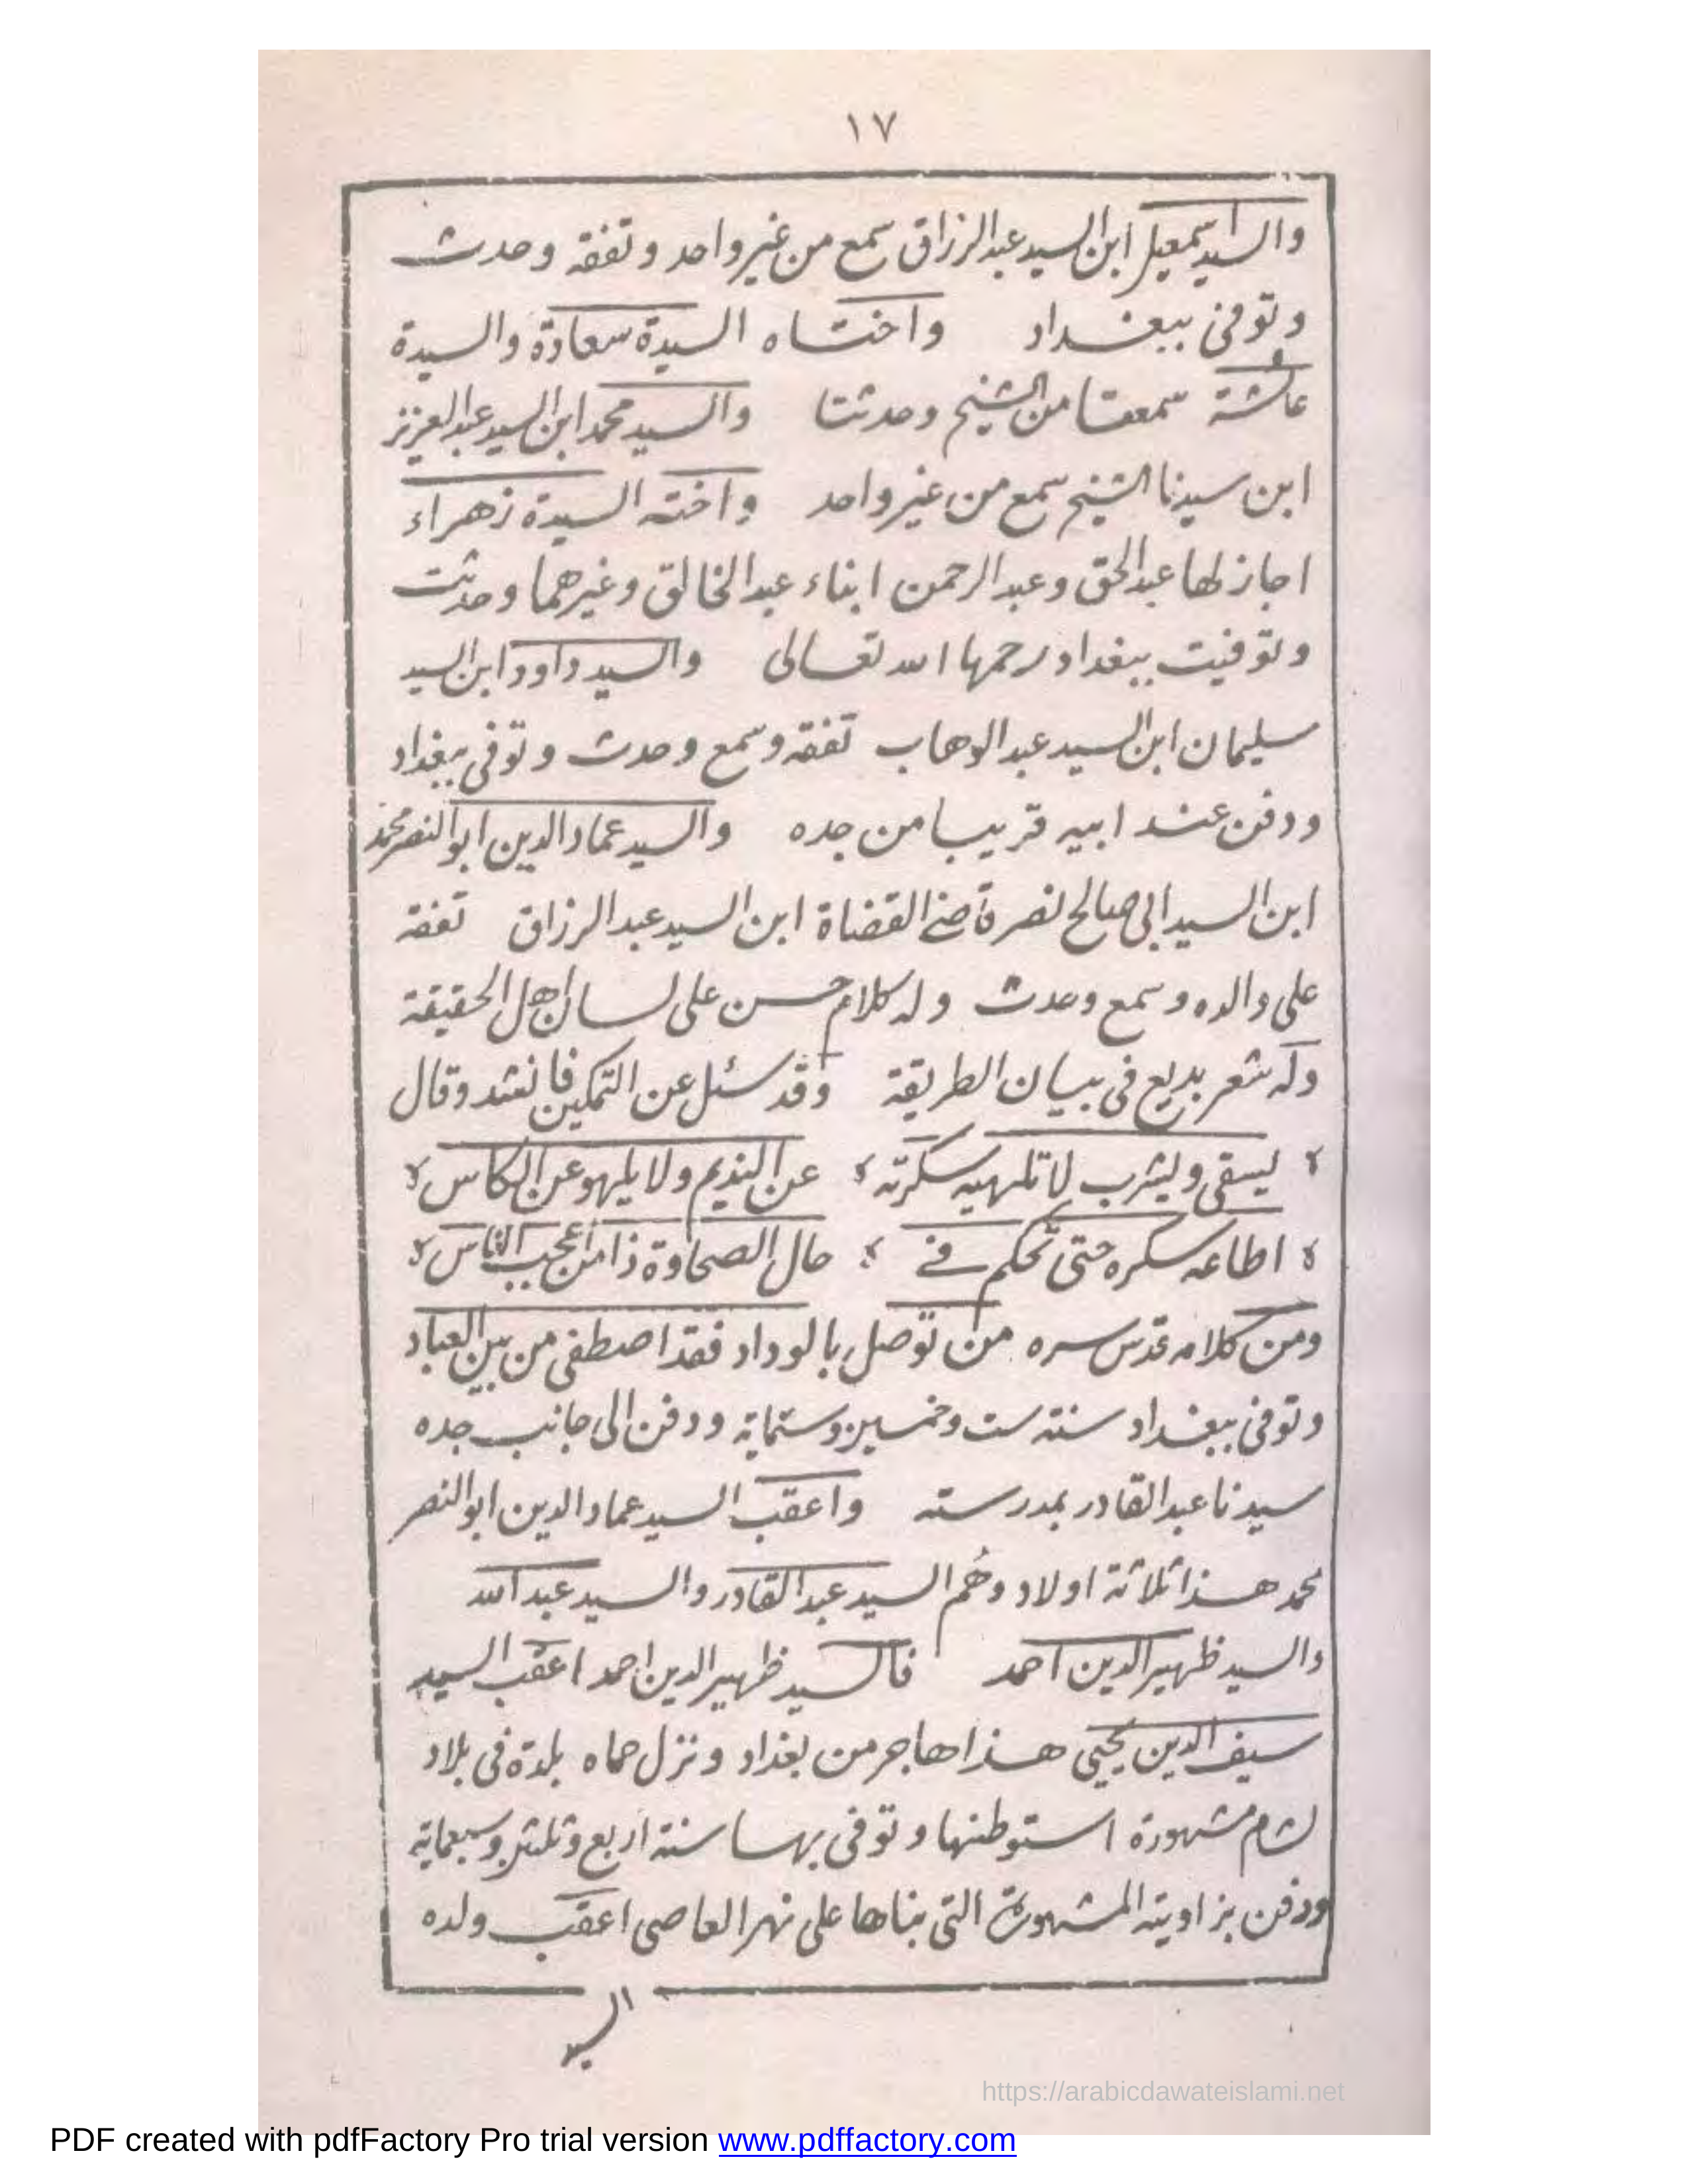 ١٧
والسيد اسمعيل ابن السيد عبد الرزاق سمع من غير واحد وتفقه وحدث
وتوفى ببغداد واختاه السيدة سعادة والسيدة
عائشة سمعتا من الشيخ وحدثتا والسيد محمد ابن السيد عبد العزيز
ابن سيدنا الشيخ سمع من غير واحد واخته السيدة زهراء
اجاز لها عبد الحق وعبد الرحمن ابناء عبد الخالق وغيرهما وحدثت
وتوفيت ببغداد رحمها الله تعالى والسيد داود ابن السيد
سليمان ابن السيد عبد الوهاب تفقه وسمع وحدث وتوفى ببغداد
ودفن عند ابيه قريبا من جده والسيد عماد الدين ابو النصر محمد
ابن السيد ابى صالح نصر قاضى القضاة ابن السيد عبد الرزاق تفقه
على والده وسمع وحدث وله كلام حسن على لسان اهل الحقيقة
وله شعر بديع فى بيان الطريقة وقد سئل عن التمكين فانشد وقال
يسقى ويشرب لا تلهيه سكرته عن النديم ولا يلهو عن الكاس
اطاعه سكره حتى تحكم فى حال الصحاوة ذا من اعجب الناس
ومن كلامه قدس سره من توصل بالوداد فقد اصطفى من بين العباد
وتوفى ببغداد سنة ست وخمسين وستماية ودفن الى جانب جده
سيدنا عبد القادر بمدرسته واعقب السيد عماد الدين ابو النصر
محمد هذا ثلاثة اولاد وهُم السيد عبد القادر والسيد عبد الله
والسيد ظهير الدين احمد فالسيد ظهير الدين احمد اعقب السيد
سيف الدين يحيى هذا هاجر من بغداد ونزل حماه بلدة فى بلاد
لشام مشهورة استوطنها وتوفى بها سنة اربع وثلثين وسبعماية
ودفن بزاويته المشهورة التى بناها على نهر العاصى اعقب ولده
السيد
https://arabicdawateislami.net
PDF created with pdfFactory Pro trial version www.pdffactory.com